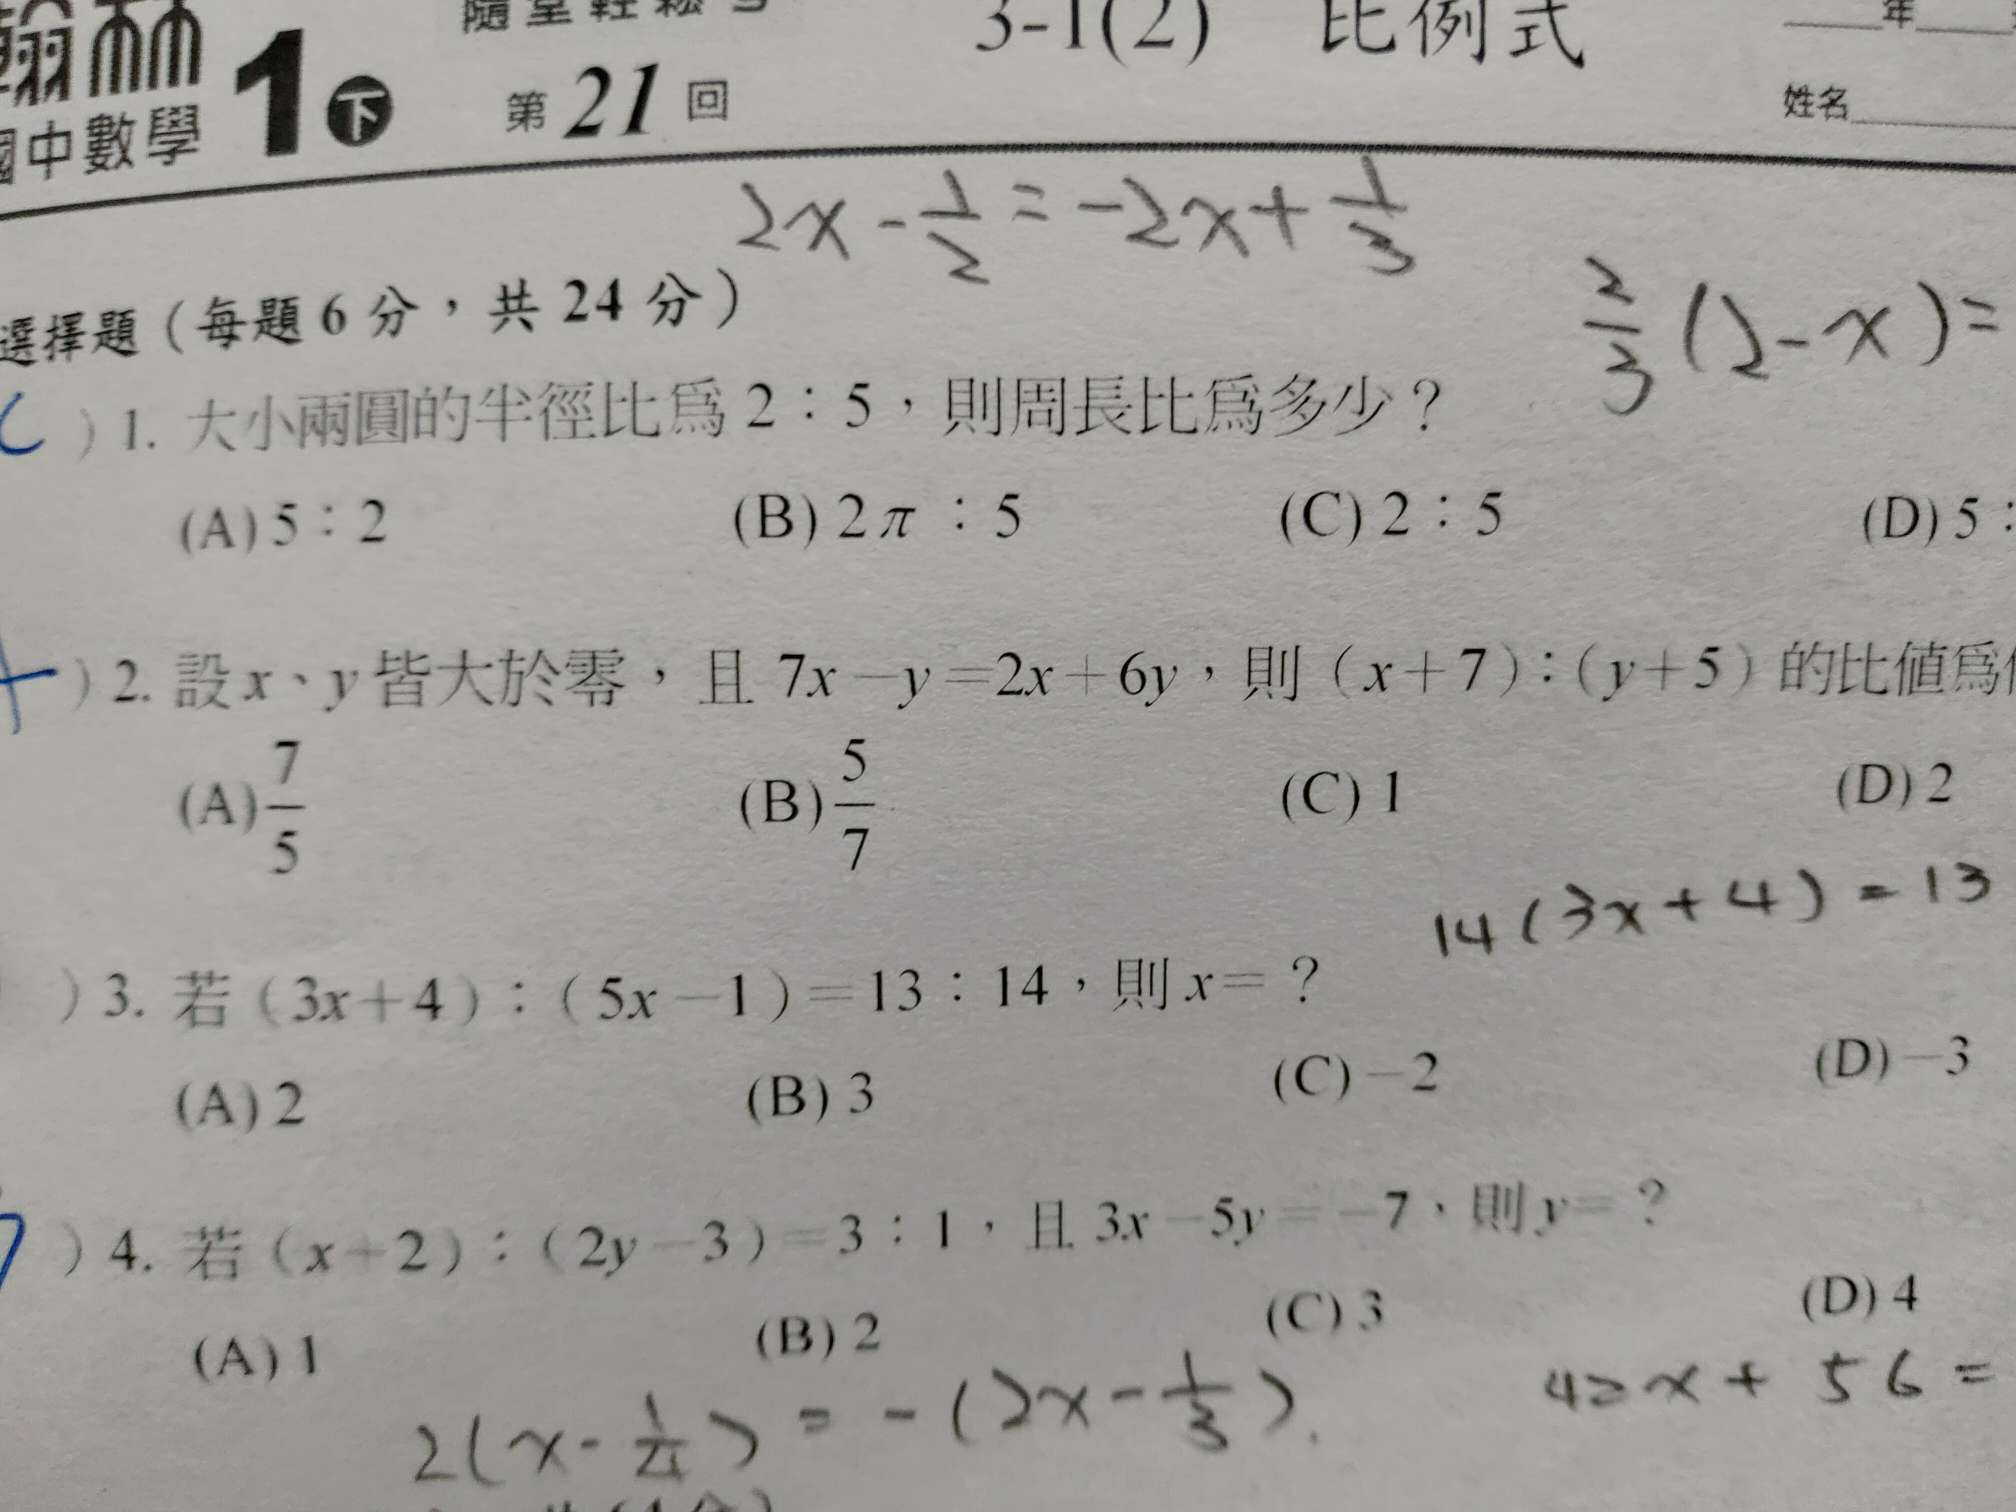 翰林 1下 隨堂輕鬆 3-1(2) 比例式 年
國中數學 第21回 姓名
2x - 1/2 = -2x + 1/3
選擇題（每題6分，共24分）
2/3 (2 - x) =
C ) 1. 大小兩圓的半徑比為 2：5，則周長比為多少？
(A) 5：2 (B) 2π：5 (C) 2：5 (D) 5：
) 2. 設 x、y 皆大於零，且 7x－y＝2x＋6y，則（x＋7）：（y＋5）的比值為
(A) 7/5 (B) 5/7 (C) 1 (D) 2
14 (3x + 4) = 13
) 3. 若（3x＋4）：（5x－1）＝13：14，則 x＝？
(A) 2 (B) 3 (C) －2 (D) －3
) 4. 若（x＋2）：（2y－3）＝3：1，且 3x－5y＝－7，則 y＝？
(A) 1 (B) 2 (C) 3 (D) 4
2(x - 1/4) = -(2x - 1/3).
42x + 56 =